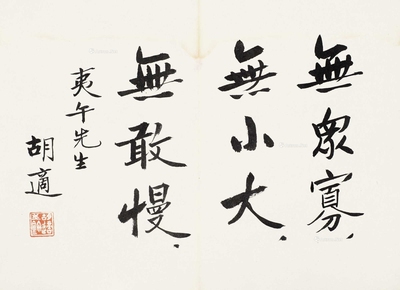 無眾寡、
無小大、
無敢慢、
夷午先生
胡適